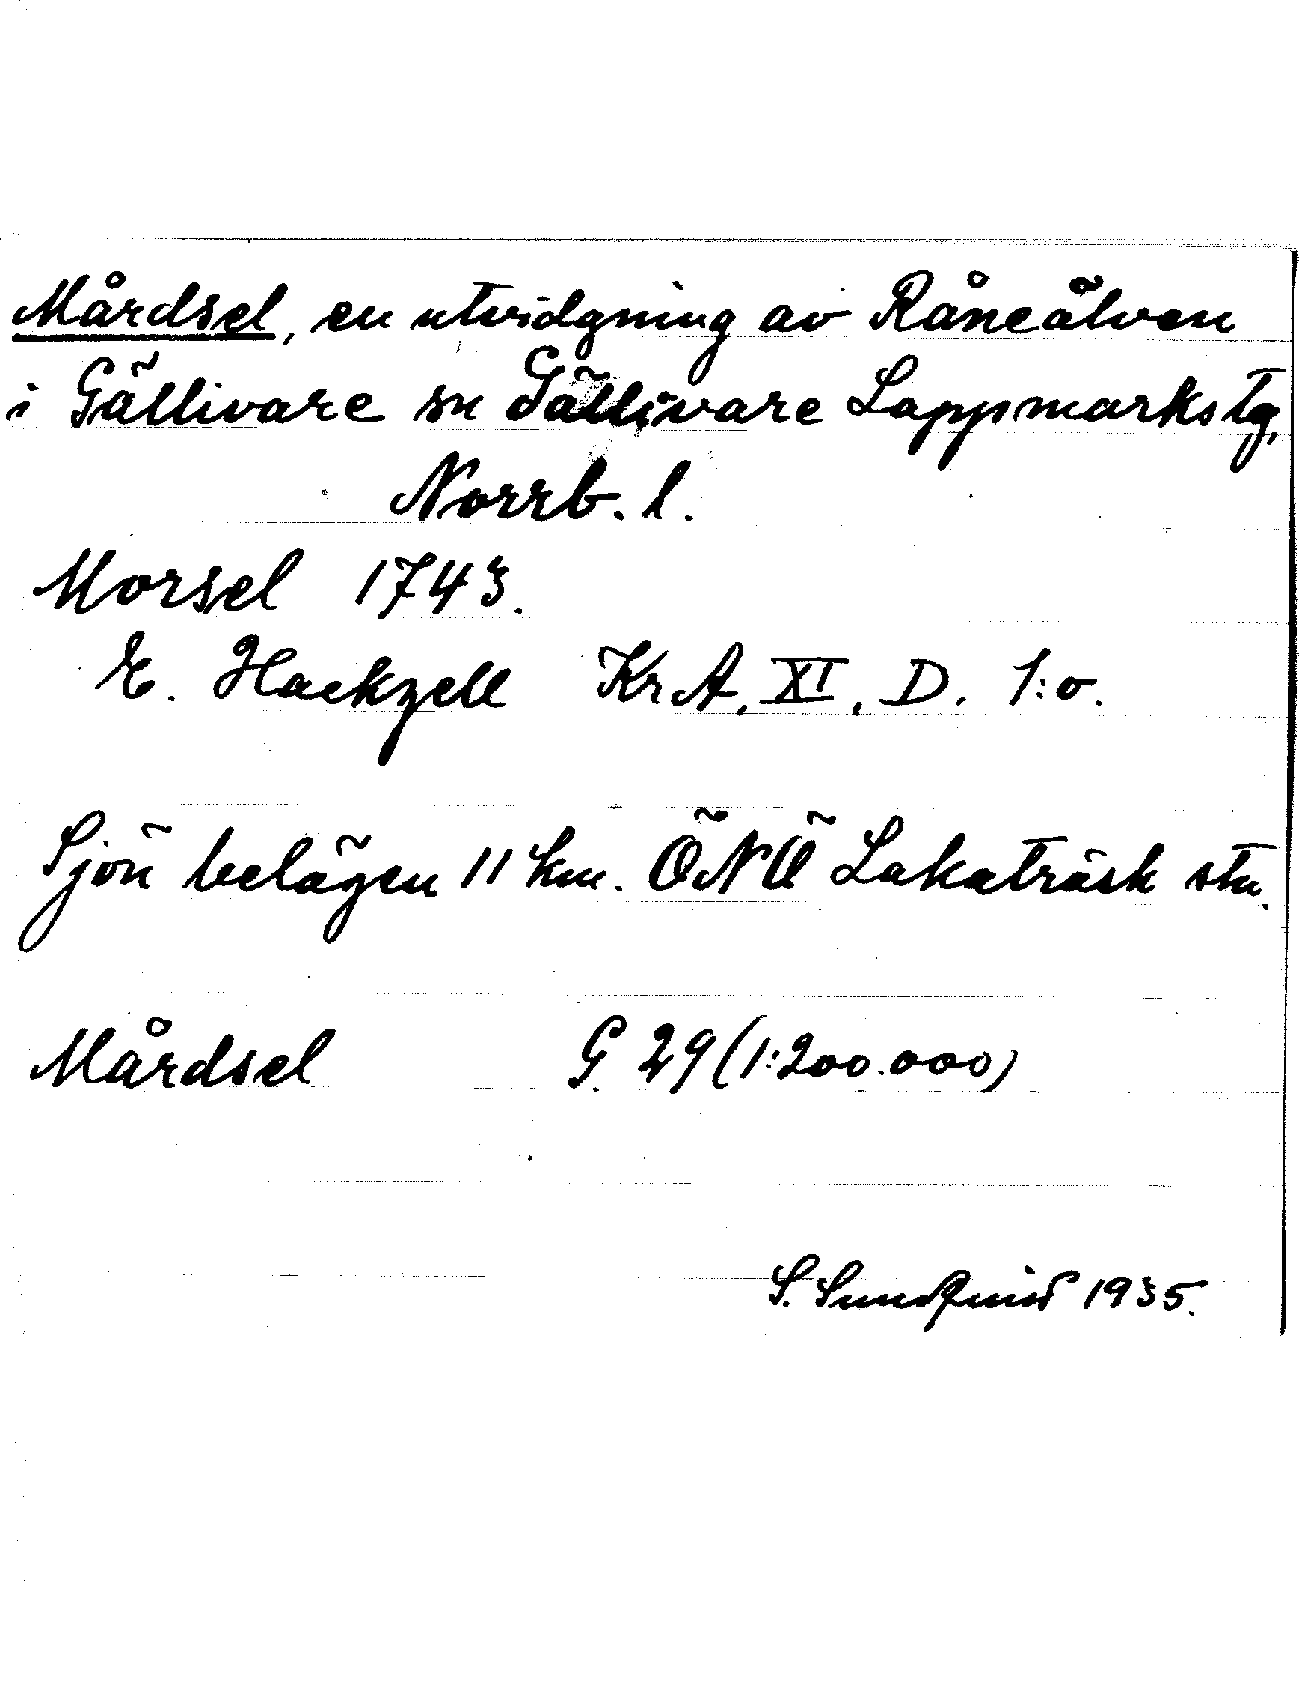 Mårdsel, en utvidgning av Råneälven
i Gällivare sn Gällivare Lappmarks tg,
Norrb. l.
Morsel 1743.
E. Hackzell KrA. XI. D. 1:o.
Sjön belägen 11 km. ÖNÖ Lakaträsk stn.
Mårdsel G. 29 (1:200.000)
S. Sundqvist 1935.